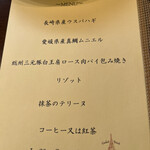 MENU
長崎県産ウスバハギ
愛媛県産真鯛ムニエル
総州三元豚白王肩ロース肉パイ包み焼き
リゾット
抹茶のテリーヌ
コーヒー又は紅茶